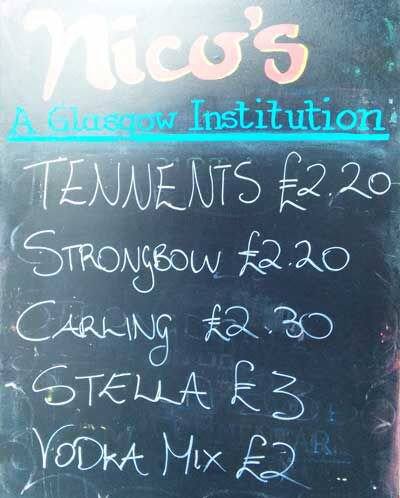 Nico's
A Glasgow Institution
TENNENTS £2.20
STRONGBOW £2.20
CARLING £2.30
STELLA £3
VODKA MIX £2